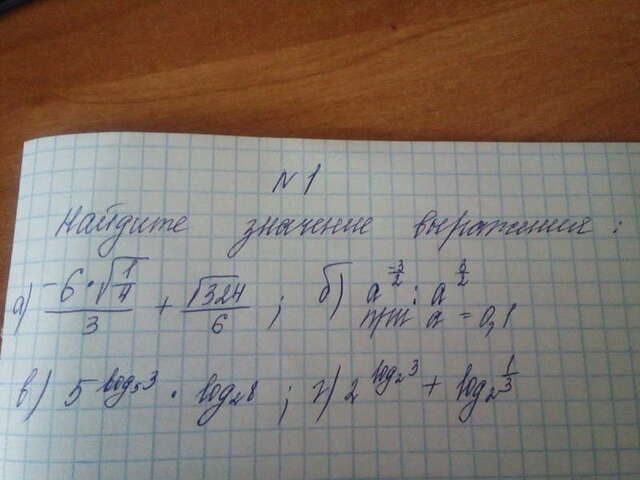 N 1
Найдите значение выражения:
а) -6·√(1/4)/3 + √324/6; б) a^(-3/2) : a^(3/2)
при a = 0,1
в) 5^(log₅3) · log₂8; г) 2^(log₂3) + log₂(1/3)